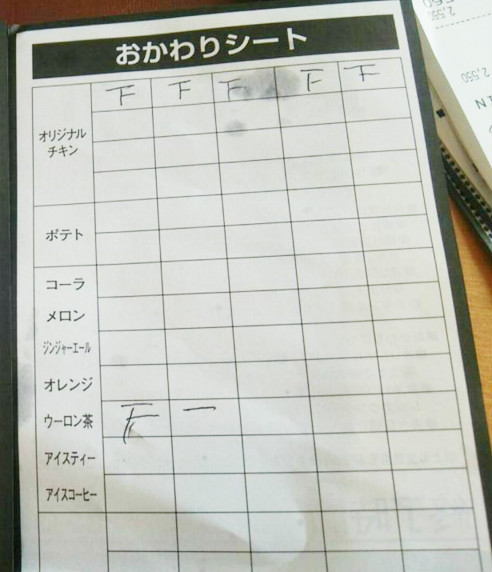 おかわりシート
オリジナル
チキン
下 下 下 下 下
ポテト
コーラ
メロン
ジンジャーエール
オレンジ
ウーロン茶 下 一
アイスティー
アイスコーヒー
2,550
2,550